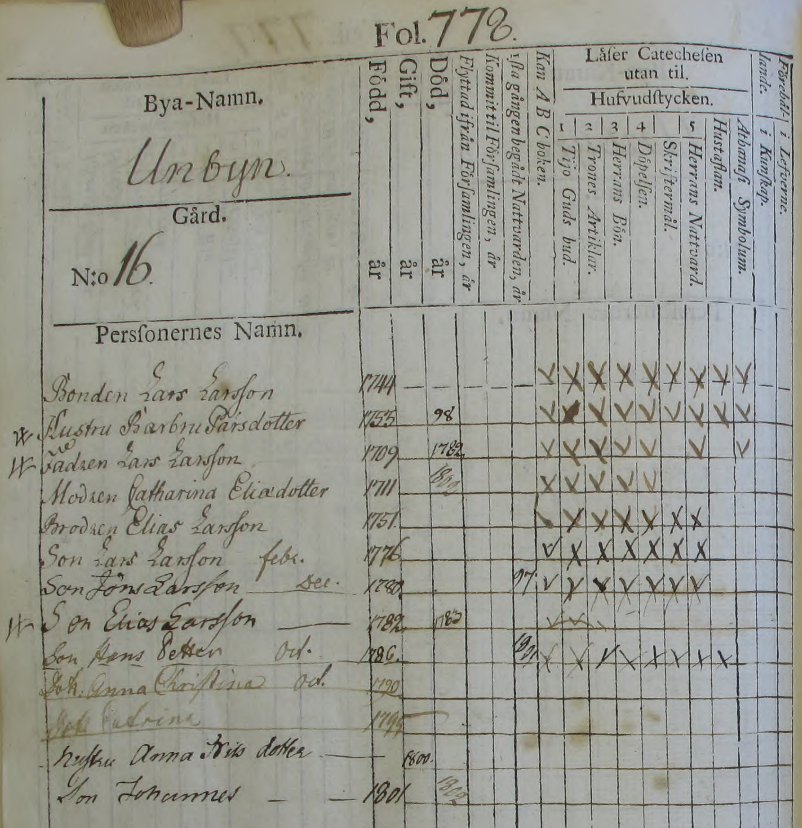 Fol. 778.
Bya-Namn.
Unbyn.
Gård.
N:o 16.
Perſonernes Namn.
Född, år
Gift, år
Död, år
Flyttad ifrån Förſamlingen, år
Kommit til Förſamlingen, år
1ſta gången begådt Nattvarden, år
Kan A B C boken.
Låſer Catecheſen utan til.
Hufvudſtycken.
1 Tijo Guds bud.
2 Trones Artiklar.
3 Herrans Bön.
4 Döpelſen.
Skriftermål.
5 Herrans Nattvard.
Huſtaflan.
Athanaſii Symbolum.
i Kunſkap.
i Lefverne.
Bonden Lars Larsſon 1744
Hustru Barbru Parsdotter 1755 98
Fadren Lars Larsſon 1709 1782
Modren Catharina Eliædotter 1711
Brodren Elias Larsſon 1751
Son Lars Larsſon febr. 1776
Son Jöns Larsſon Dec. 1780 97
Son Elias Larsſon 1782 1783
Son Hans Petter Oct. 1786
Dott. Anna Christina Oct. 1790
Dott Catrina
hustru Anna Nils dotter 1800
Son Johannes 1801 1802